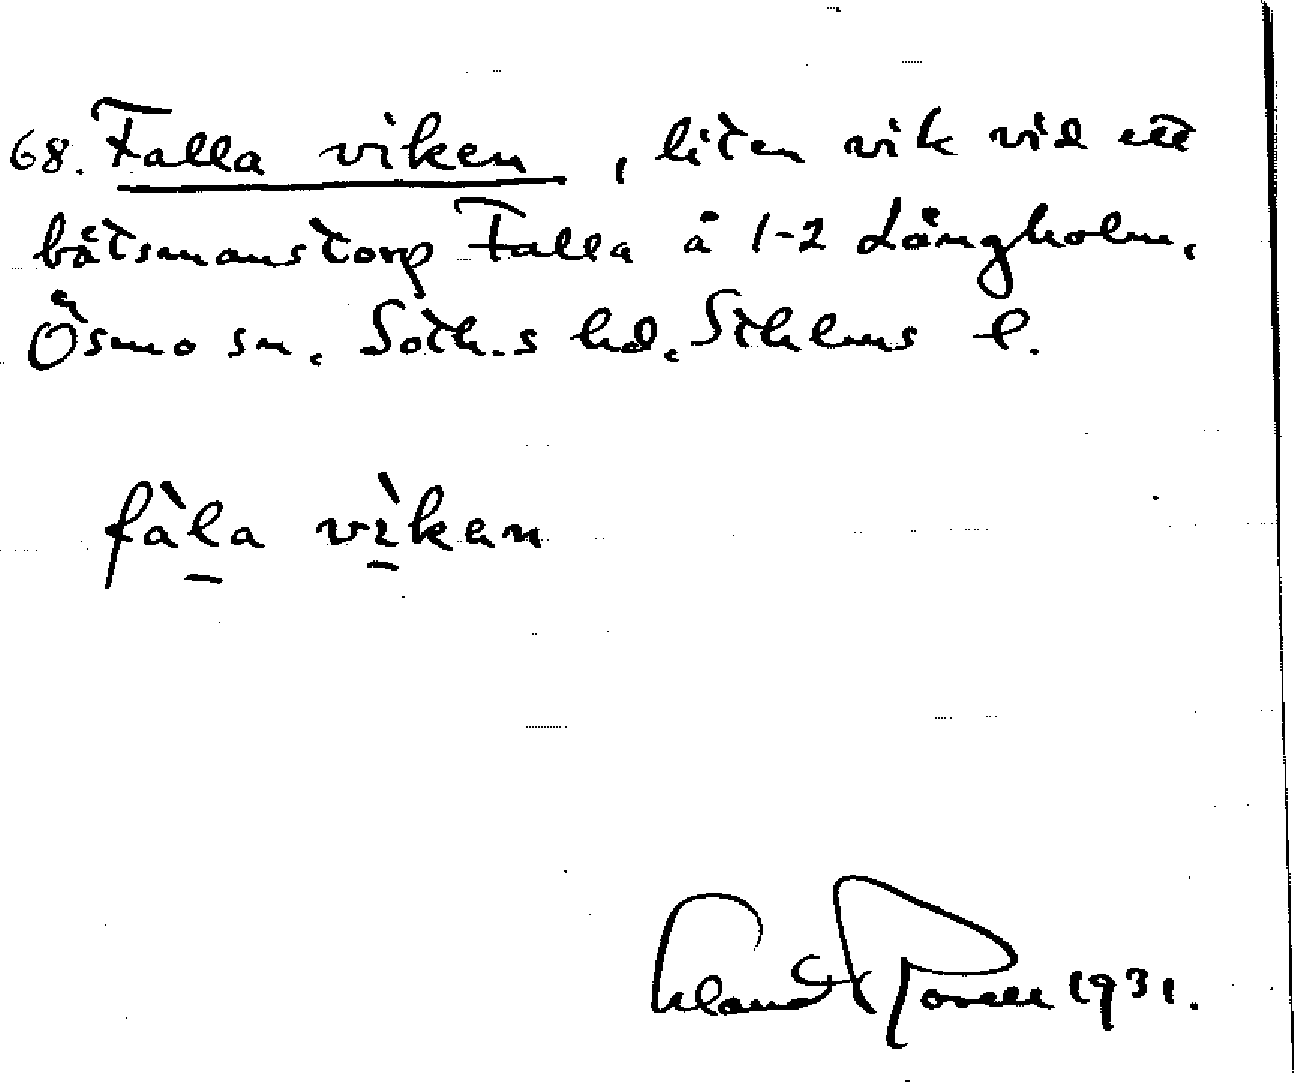 68. Falla viken, liten vik vid ett
båtsmanstorp Falla å 1-2 Långholm.
Ösmo sn. Soth.s hd. Sthlms l.
fàla vìken
1931.